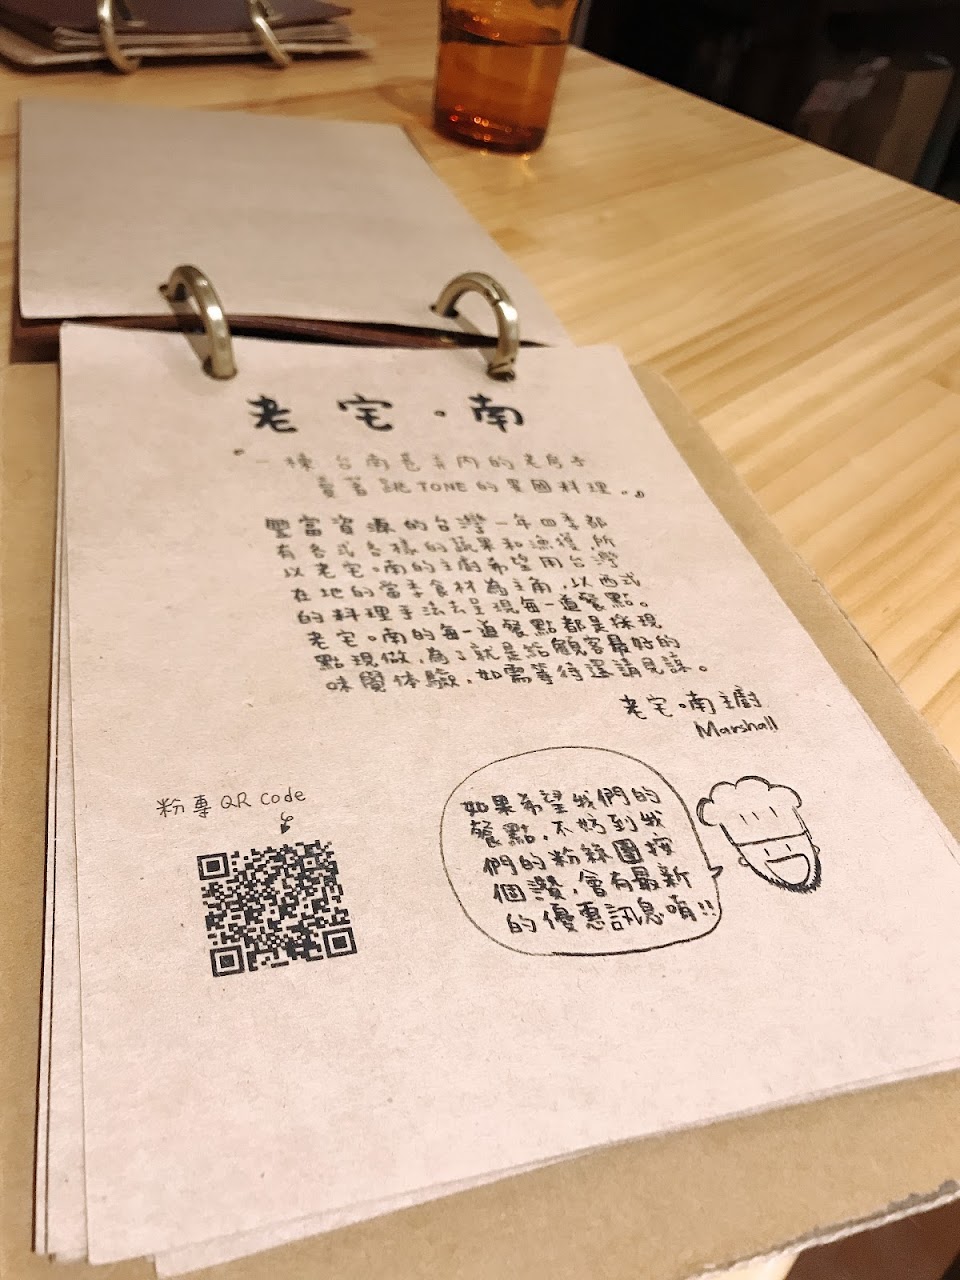 老宅。南
"一棟台南巷弄內的老房子
賣著跳TONE的異國料理。"
豐富資源的台灣一年四季都
有各式各樣的蔬果和漁獲,所
以老宅。南的主廚希望用台灣
在地的當季食材為主角,以西式
的料理手法去呈現每一道餐點。
老宅。南的每一道餐點都是採現
點現做,為了就是給顧客最好的
味覺体驗,如需等待還請見諒。
老宅。南主廚
Marshall
粉專QR code
如果希望我們的
餐點,不妨到我
們的粉絲團按
個讚,會有最新
的優惠訊息唷!!